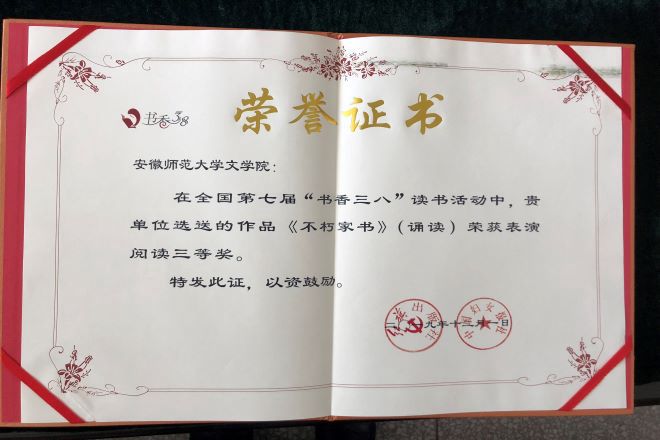 书香38
荣誉证书
安徽师范大学文学院：
在全国第七届“书香三八”读书活动中，贵
单位选送的作品《不朽家书》（诵读）荣获表演
阅读三等奖。
特发此证，以资鼓励。
九年十二月一日
出版社
中国妇女报社